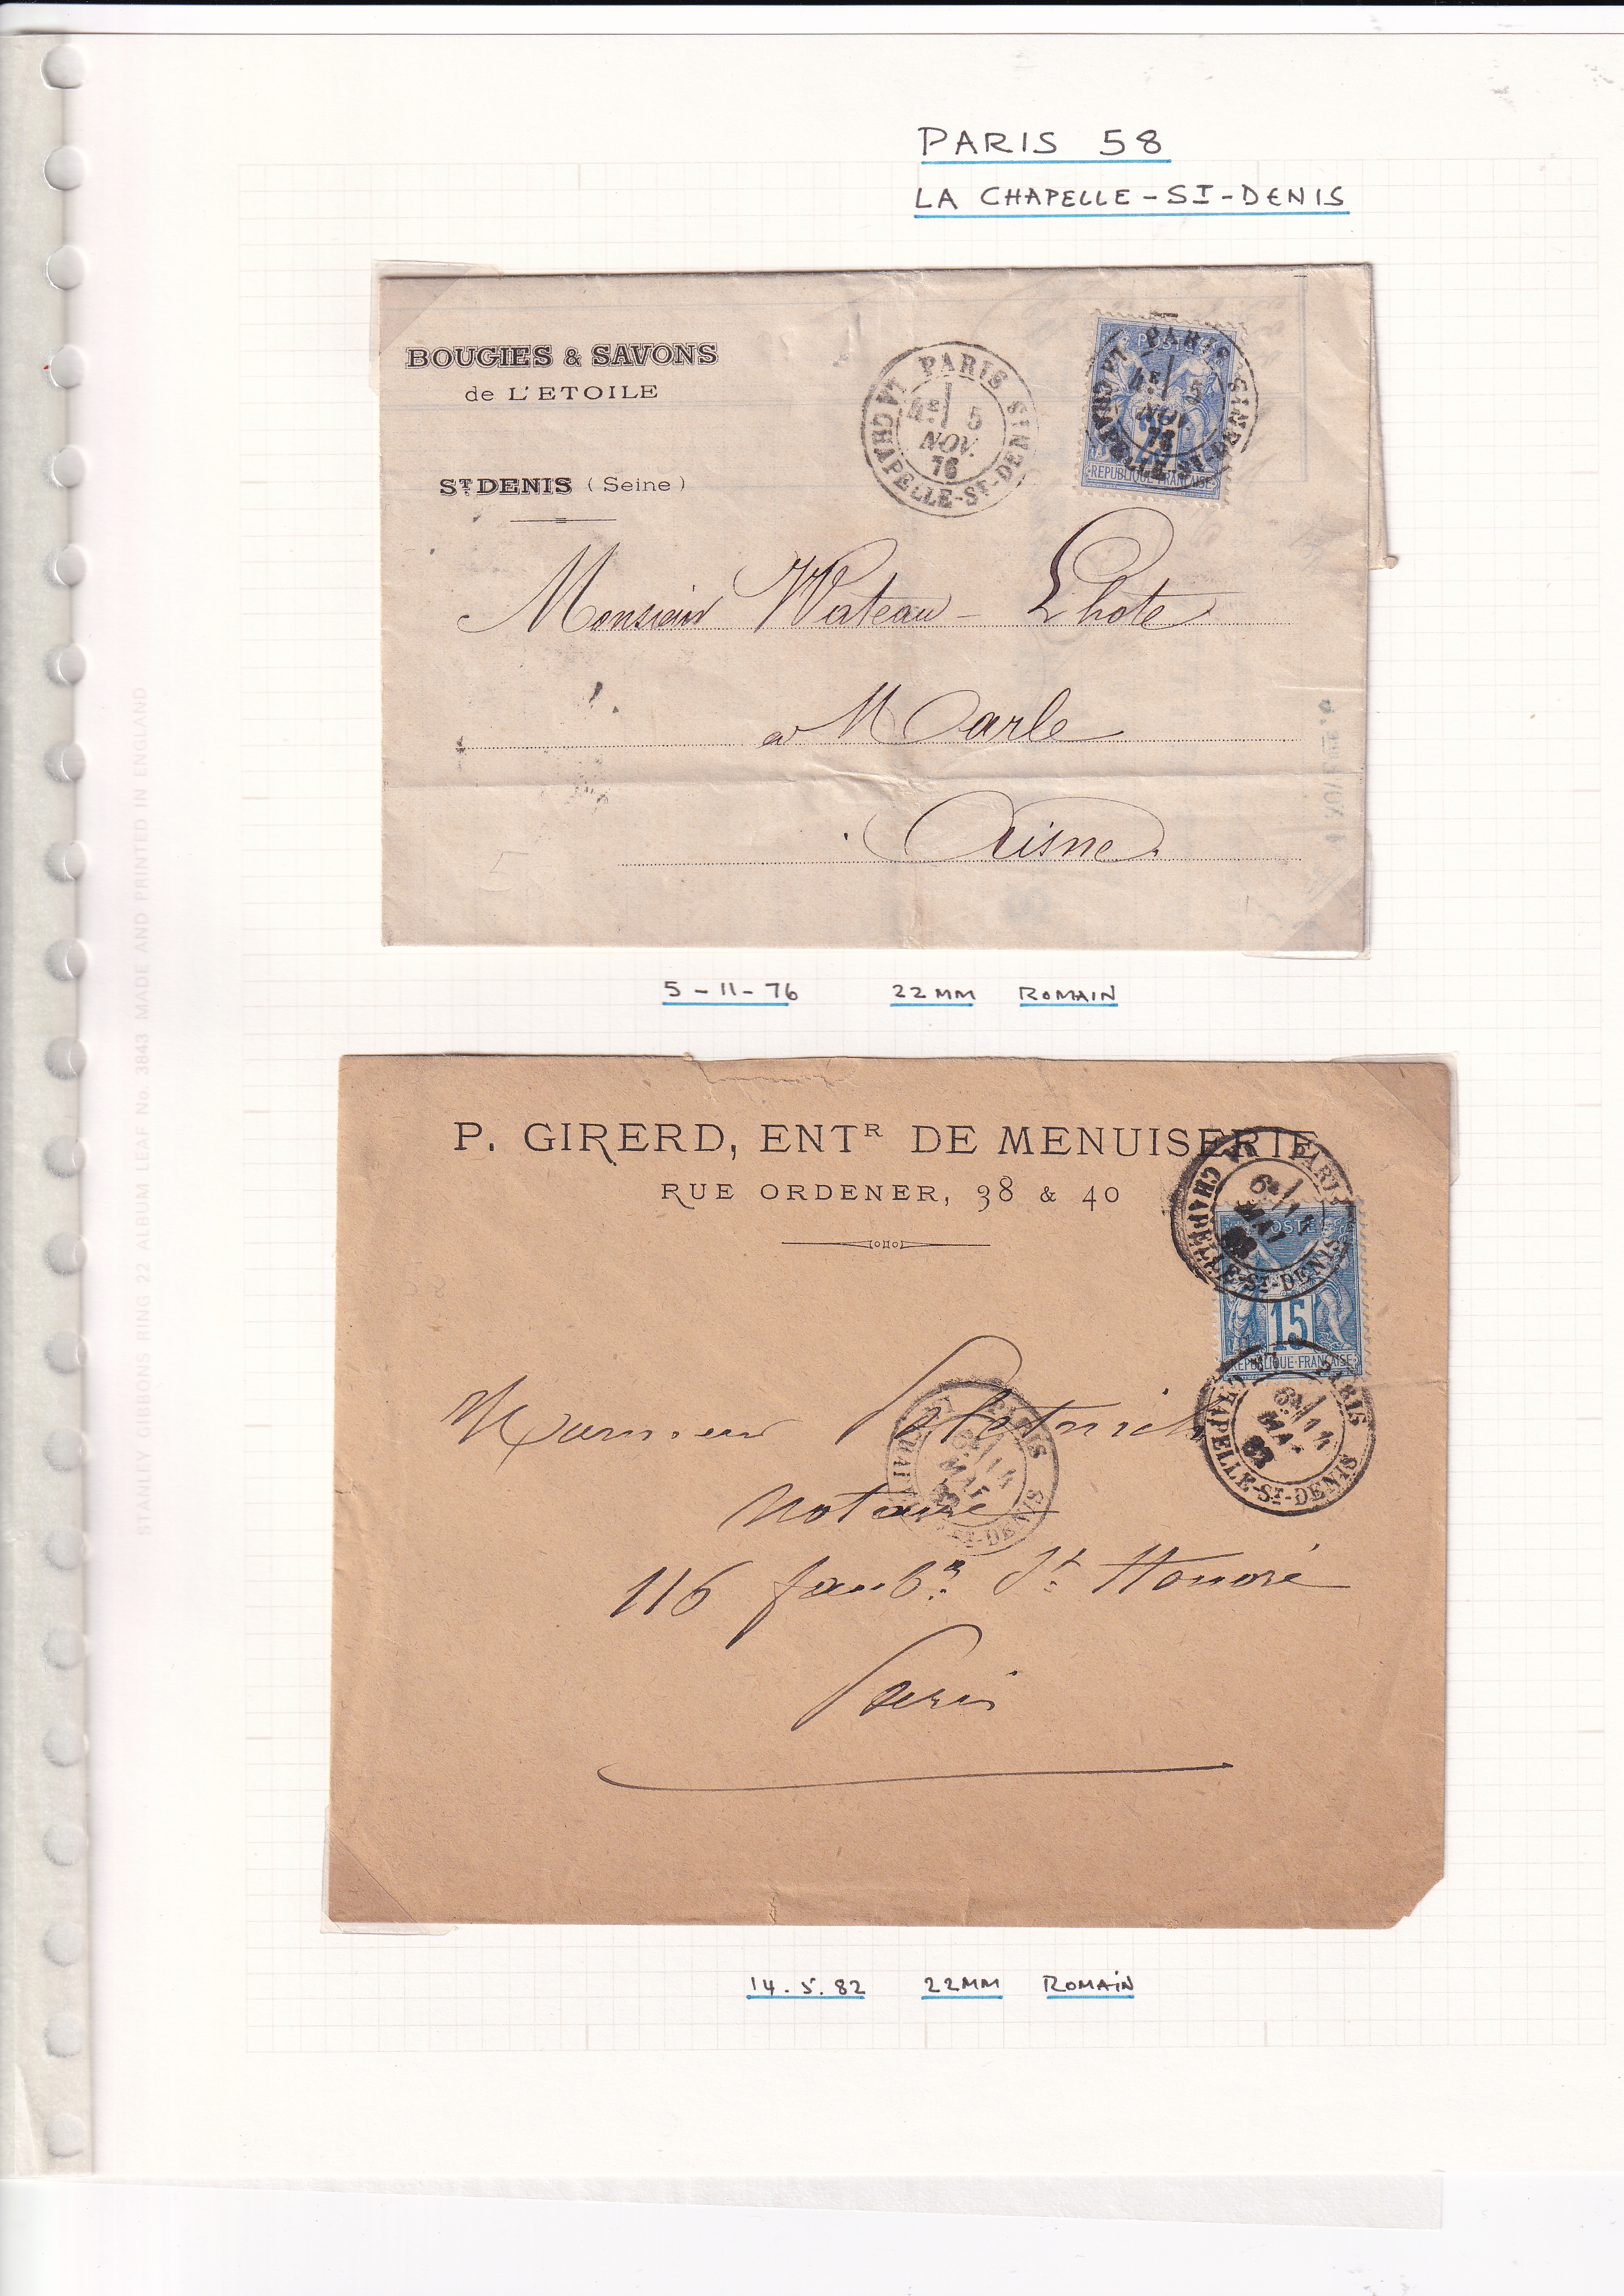 PARIS 58
LA CHAPELLE-ST-DENIS
BOUGIES & SAVONS
de L'ETOILE
ST DENIS (Seine)
PARIS
LA CHAPELLE-ST-DENIS
4E 5
NOV.
76
PARIS
LA CHAPELLE-ST-DENIS
4E 5
NOV.
76
REPUBLIQUE FRANÇAISE
Monsieur Wateau-Lhote
a Marle
Aisne
5-11-76 22MM ROMAIN
P. GIRERD, ENTR DE MENUISERIE
RUE ORDENER, 38 & 40
PARIS
LA CHAPELLE-ST-DENIS
6E 14
MAI
82
POSTES
15
REPUBLIQUE FRANÇAISE
PARIS
LA CHAPELLE-ST-DENIS
6E 14
MAI
82
PARIS
ST-DENIS
6E 14
MAI
82
Monsieur
Notaire
116 faubg St Honoré
Paris
14.5.82 22MM ROMAIN
STANLEY GIBBONS RING 22 ALBUM LEAF No. 3843 MADE AND PRINTED IN ENGLAND